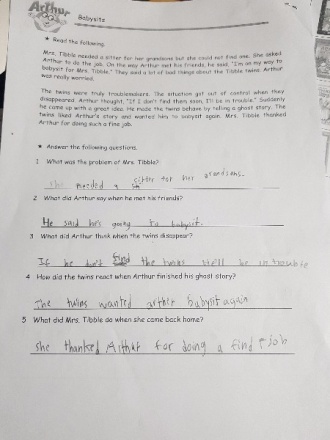 Arthur
Babysits
★ Read the following.
Mrs. Tibble needed a sitter for her grandsons but she could not find one. She asked
Arthur to do the job. On the way Arthur met his friends, he said, "I'm on my way to
babysit for Mrs. Tibble." They said a lot of bad things about the Tibble twins. Arthur
was really worried.
The twins were truly troublemakers. The situation got out of control when they
disappeared. Arthur thought, "If I don't find them soon, I'll be in trouble." Suddenly
he came up with a great idea. He made the twins behave by telling a ghost story. The
twins liked Arthur's story and wanted him to babysit again. Mrs. Tibble thanked
Arthur for doing such a fine job.
★ Answer the following questions.
1 What was the problem of Mrs. Tibble?
she needed a sitter for her grandsons.
2 What did Arthur say when he met his friends?
He said he's going to babysit.
3 What did Arthur think when the twins disappear?
If he find the twins he'll be in trouble
4 How did the twins react when Arthur finished his ghost story?
The twins wanted arther babysit again
5 What did Mrs. Tibble do when she came back home?
she thanked Arthur for doing a find job